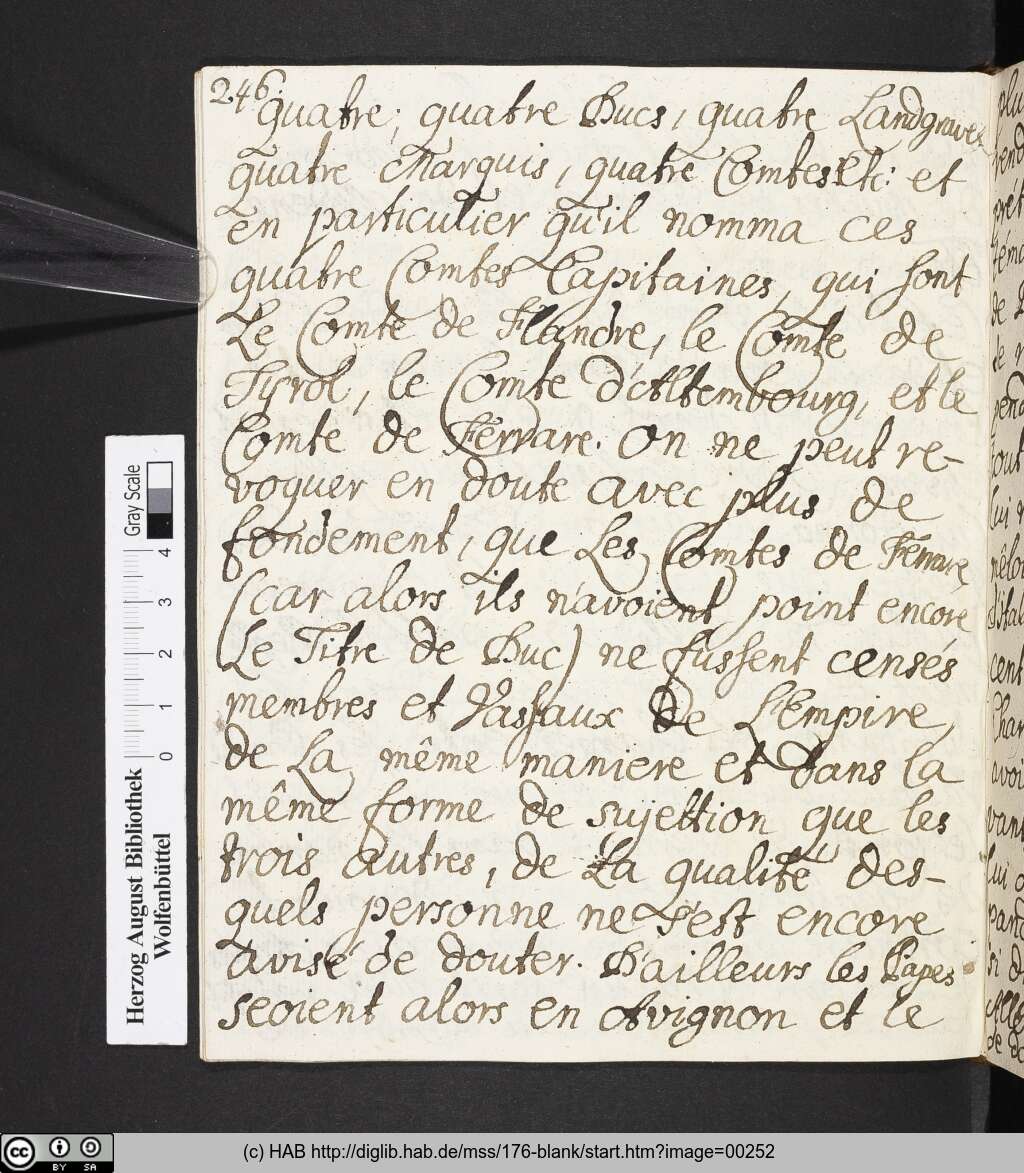 246.
quatre; quatre Ducs, quatre Landgraves
quatre Marquis, quatre Comtes Etc: et
en particulier qu'il nomma ces
quatre Comtes Capitaines, qui sont
Le Comte de Flandre, le Comte de
Tyrol, le Comte d'Altembourg, et le
Comte de Ferrare. On ne peut re-
voquer en doute avec plus de
fondement, que Les Comtes de Ferrare,
(car alors ils n'avoient point encore
Le Titre de Duc) ne fussent censés
membres et Vassaux de L'Empire,
de La même maniere et dans la
même forme de sujettion que les
trois autres, de La qualité des-
quels personne ne s'est encore
avisé de douter. D'ailleurs les Papes
seoient alors en Avignon et le
Herzog August Bibliothek
Wolfenbüttel
Gray Scale
0 1 2 3 4
(c) HAB http://diglib.hab.de/mss/176-blank/start.htm?image=00252
cc BY SA